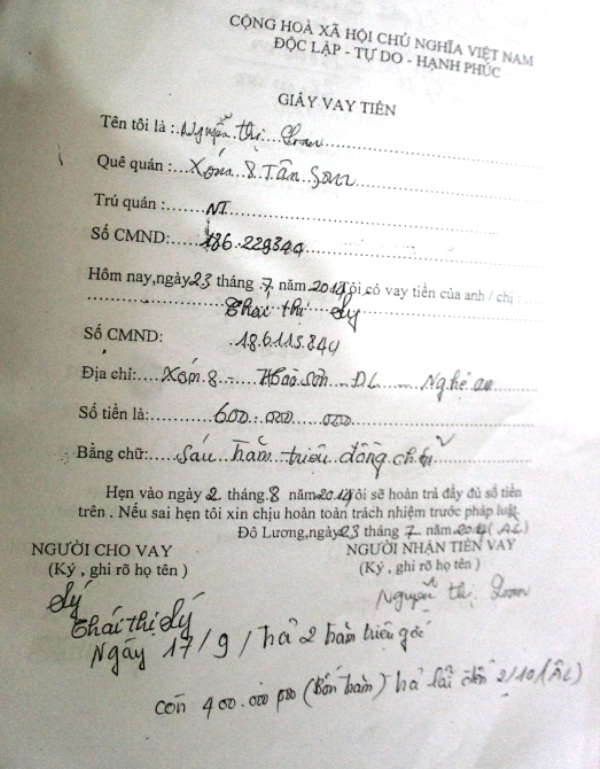 CỘNG HOÀ XÃ HỘI CHỦ NGHĨA VIỆT NAM
ĐỘC LẬP - TỰ DO - HẠNH PHÚC
GIẤY VAY TIỀN
Tên tôi là : Nguyễn thị
Quê quán : Xóm 8 Tân Sơn
Trú quán : NT
Số CMND: 186.229344
Hôm nay,ngày 23 tháng 7 năm 2014 tôi có vay tiền của anh / chị :
Thái thị Lý
Số CMND: 186115.844
Địa chỉ: Xóm 8 - Hoà Sơn ĐL Nghệ an
Số tiền là: 600.000.000
Bằng chữ: Sáu trăm triệu đồng chẵn
Hẹn vào ngày 2 tháng 8 năm 2014 tôi sẽ hoàn trả đầy đủ số tiền
trên . Nếu sai hẹn tôi xin chịu hoàn toàn trách nhiệm trước pháp luật.
Đô Lương,ngày 23 tháng 7 năm 2014 (AL)
NGƯỜI CHO VAY NGƯỜI NHẬN TIỀN VAY
(Ký , ghi rõ họ tên ) (Ký , ghi rõ họ tên )
Lý Nguyễn thị
Thái thị Lý
Ngày 17/9/ trả 2 trăm triệu gốc
còn 400.000 000 (Bốn trăm) trả lãi đến 2/10 (ÂL)